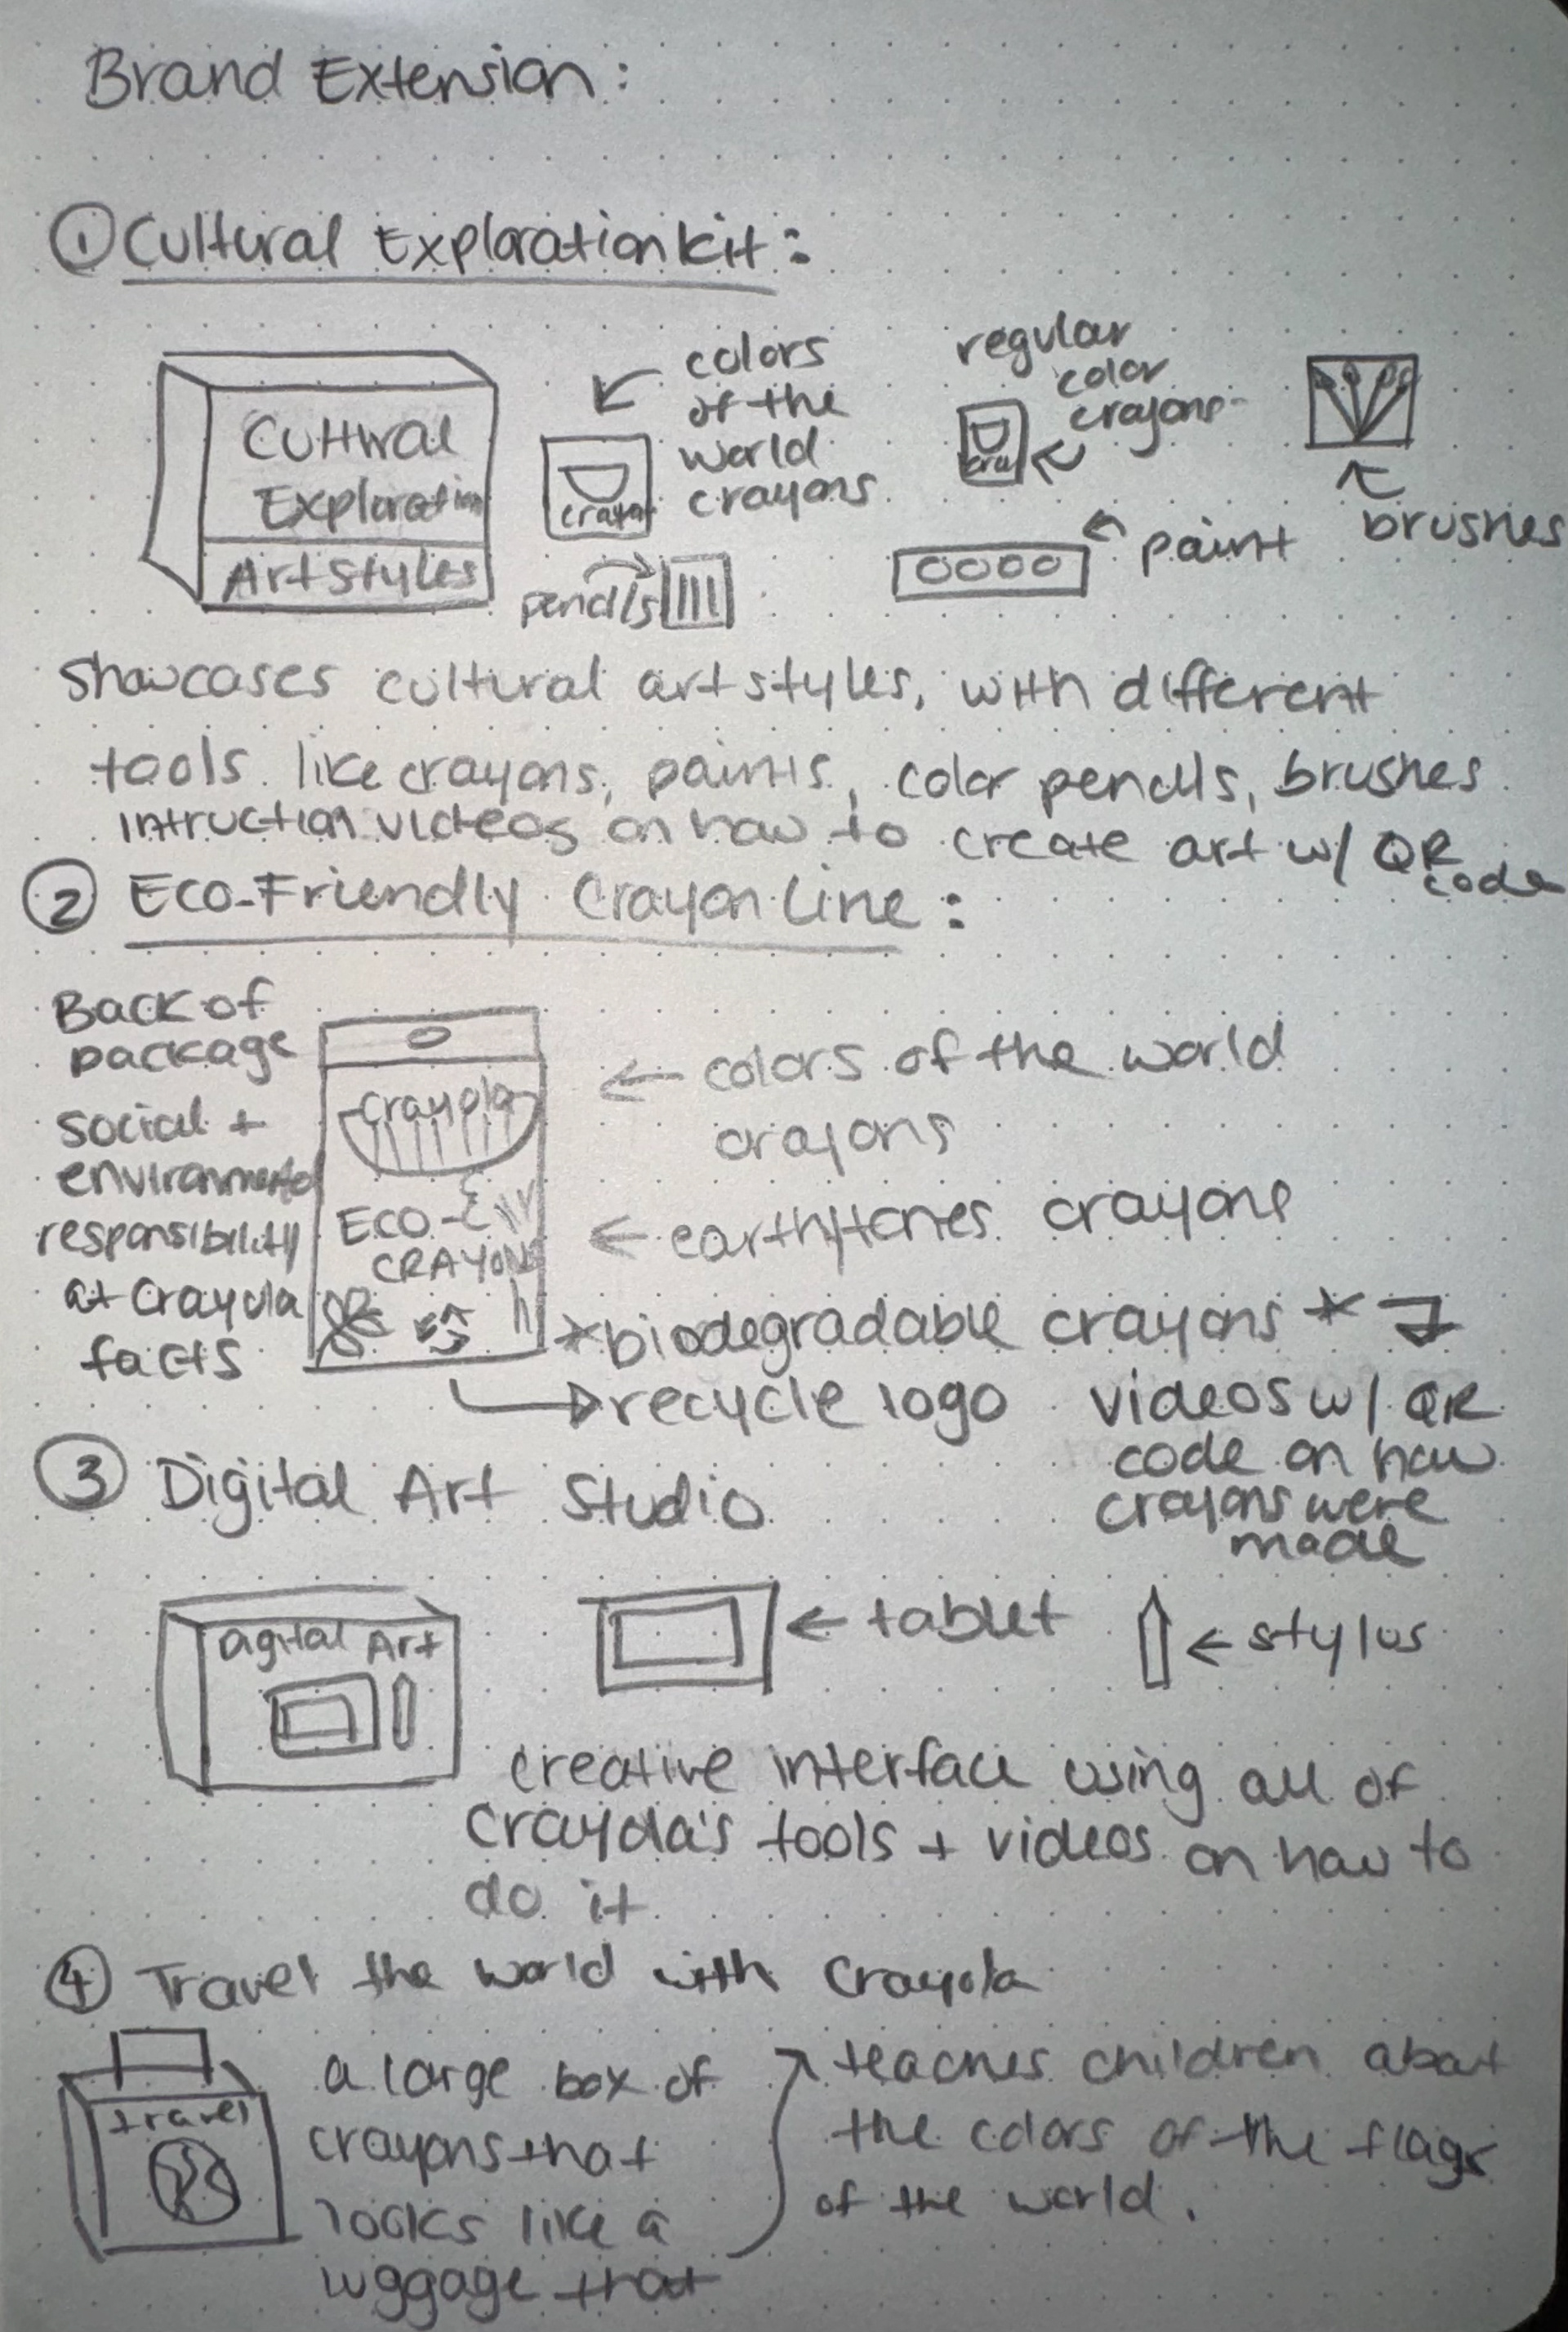 Brand Extension:
① Cultural Exploration kit:
Cultural
Exploration
Art Styles
colors
of the
world
crayons
regular
color
crayons
brushes
paint
pencils
Showcases cultural art styles, with different
tools like crayons, paints, color pencils, brushes
intruction videos on how to create art w/ QR
code
② Eco-Friendly Crayon Line:
Back of
package
social +
environmental
responsibility
at Crayola
facts
Crayola
ECO-
CRAYONS
← colors of the world
crayons
← earth/tones crayons
*biodegradable crayons*
recycle logo
videos w/ QR
code on how
crayons were
made
③ Digital Art Studio
Digital Art
← tablet
← stylus
creative interface using all of
Crayola's tools + videos on how to
do it
④ Travel the world with Crayola
travel
a large box of
crayons that
looks like a
luggage that
teaches children about
the colors of the flags
of the world.